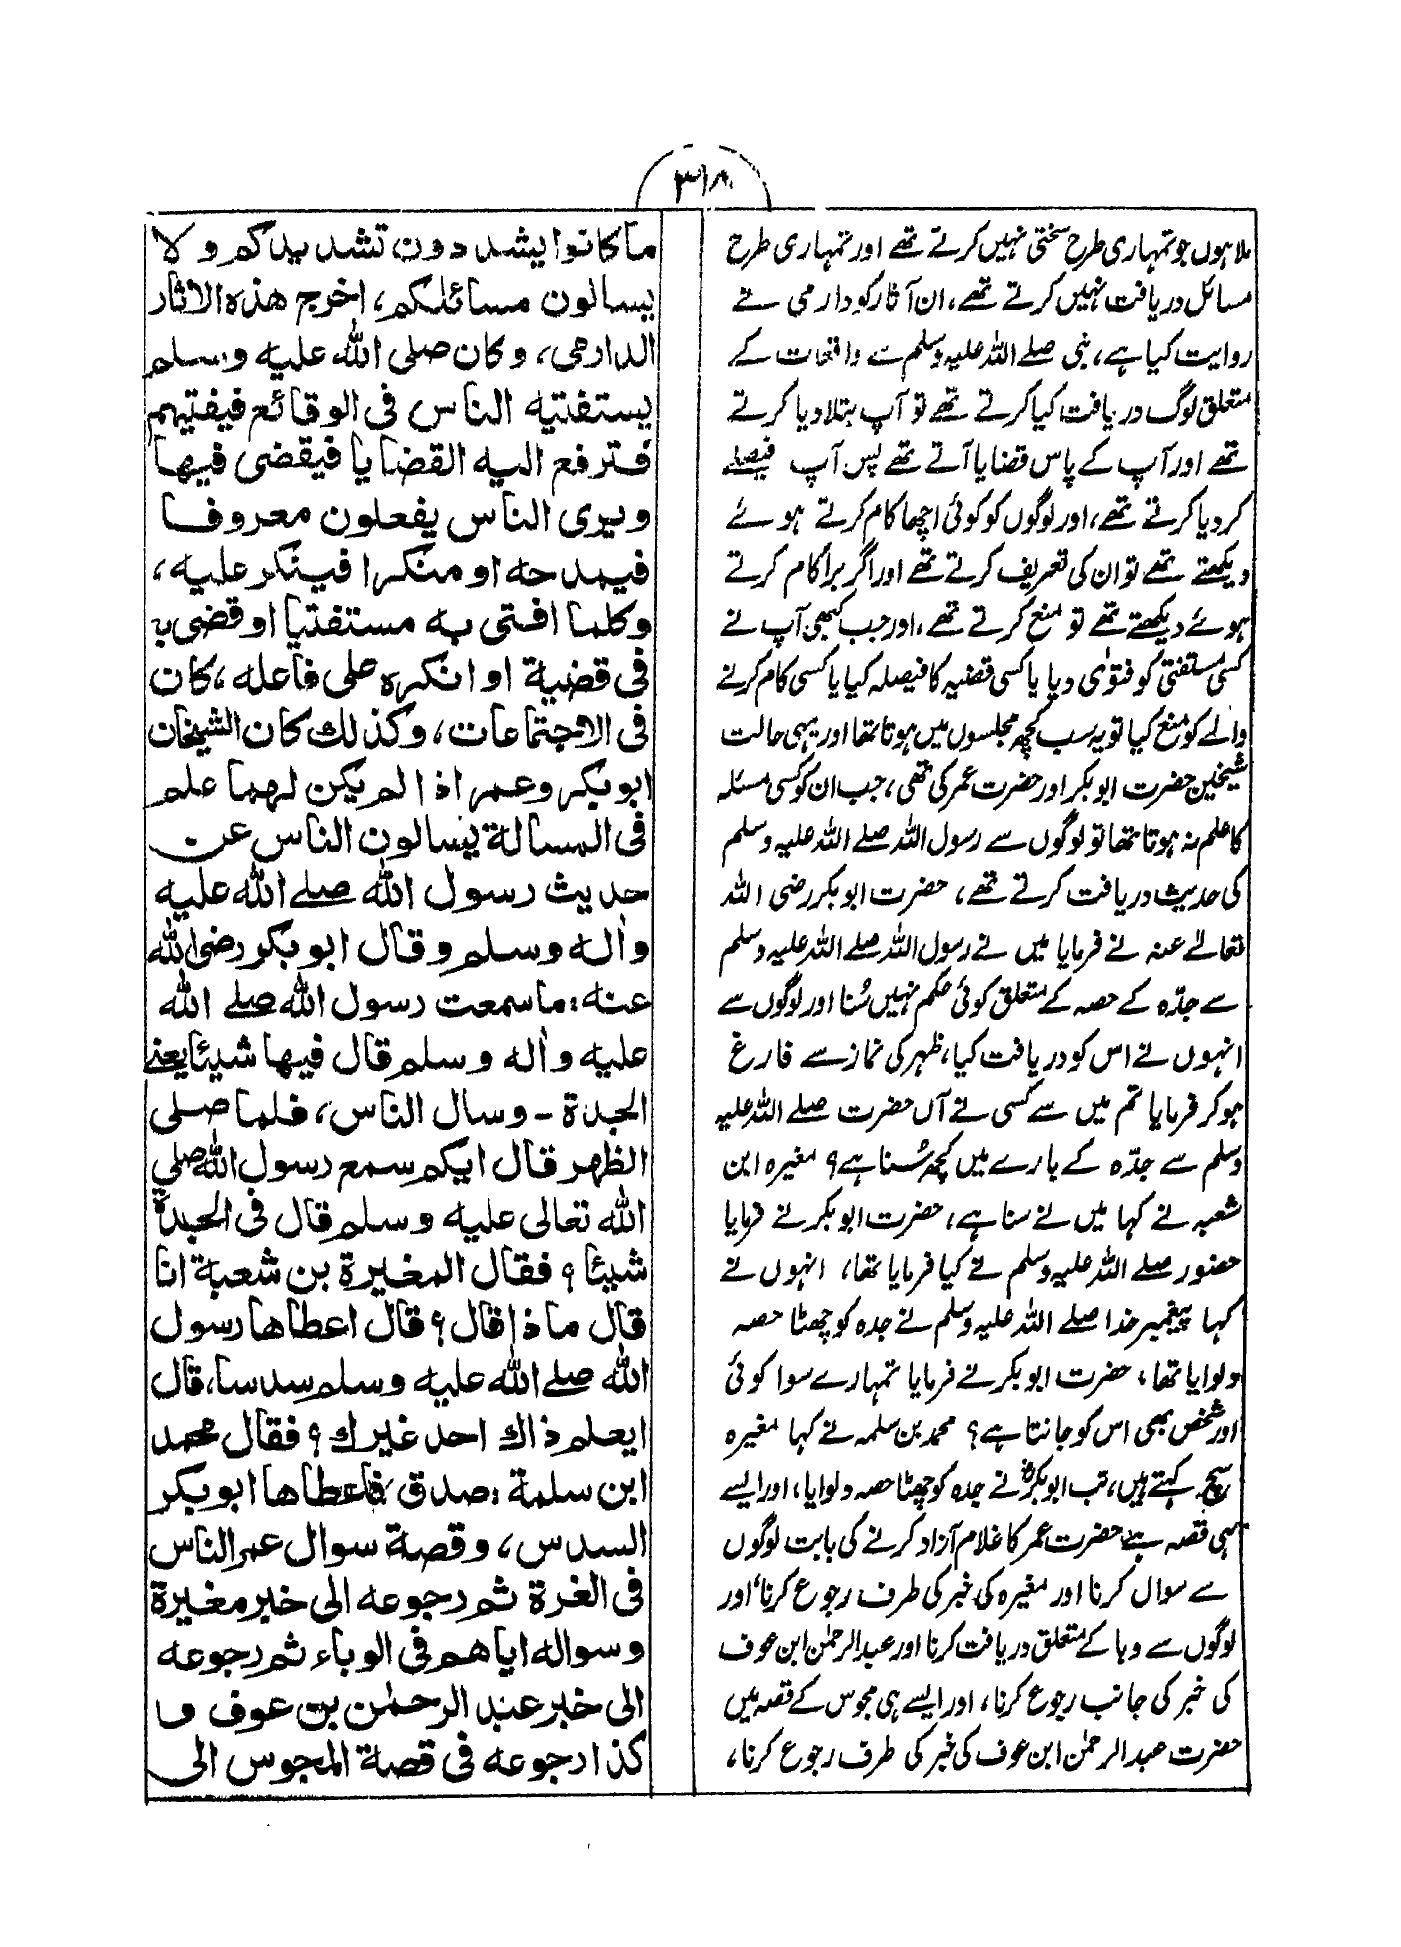 ۳۱۸
ملا ہوں جو تمہاری طرح سختی نہیں کرتے تھے اور تمہاری طرح
مسائل دریافت نہیں کرتے تھے، ان آثار کو دارمی نے
روایت کیا ہے، نبی صلے اللہ علیہ وسلم سے واقعات کے
متعلق لوگ دریافت کیا کرتے تھے تو آپ بتلادیا کرتے
تھے اور آپ کے پاس قضایا آتے تھے پس آپ فیصلے
کردیا کرتے تھے، اور لوگوں کو کوئی اچھا کام کرتے ہوئے
دیکھتے تھے تو ان کی تعریف کرتے تھے اور اگر برا کام کرتے
ہوئے دیکھتے تھے تو منع کرتے تھے، اور جب کبھی آپ نے
کسی مستفتی کو فتوٰی دیا یا کسی قضیہ کا فیصلہ کیا یا کسی کام کرنے
والے کو منع کیا تو یہ سب کچھ مجلسوں میں ہوتا تھا اور یہی حالت
شیخین حضرت ابوبکر اور حضرت عمر کی تھی، جب ان کو کسی مسئلہ
کا علم نہ ہوتا تھا تو لوگوں سے رسول اللہ صلے اللہ علیہ وسلم
کی حدیث دریافت کرتے تھے، حضرت ابوبکر رضی اللہ
تعالے عنہ نے فرمایا میں نے رسول اللہ صلے اللہ علیہ وسلم
سے جدّہ کے حصہ کے متعلق کوئی حکم نہیں سُنا اور لوگوں سے
انہوں نے اس کو دریافت کیا، ظہر کی نماز سے فارغ
ہوکر فرمایا تم میں سے کسی نے آں حضرت صلے اللہ علیہ
وسلم سے جدّہ کے بارے میں کچھ سُنا ہے؟ مغیرہ ابن
شعبہ نے کہا میں نے سنا ہے، حضرت ابوبکر نے فرمایا
حضور صلے اللہ علیہ وسلم نے کیا فرمایا تھا، انہوں نے
کہا پیغمبر خدا صلے اللہ علیہ وسلم نے جدہ کو چھٹا حصہ
دلوایا تھا، حضرت ابوبکر نے فرمایا تمہارے سوا کوئی
اور شخص بھی اس کو جانتا ہے؟ محمد بن سلمہ نے کہا مغیرہ
سچ کہتے ہیں، تب ابوبکرؓ نے جدہ کو چھٹا حصہ دلوایا، اور ایسے
ہی قصہ ہے حضرت عمر کا غلام آزاد کرنے کی بابت لوگوں
سے سوال کرنا اور مغیرہ کی خبر کی طرف رجوع کرنا، اور
لوگوں سے وبا کے متعلق دریافت کرنا اور عبدالرحمٰن ابن عوف
کی خبر کی جانب رجوع کرنا، اور ایسے ہی مجوس کے قصہ میں
حضرت عبدالرحمٰن ابن عوف کی خبر کی طرف رجوع کرنا،
ما کانوا یشد دون تشدیدکم ولا
یسالون مسائلکم، اخرج هذہ الاثار
الدارمی، وکان صلی اللہ علیہ وسلم
یستفتیہ الناس فی الوقائع فیفتیهم
فترفع الیہ القضایا فیقضی فیها
ویری الناس یفعلون معروفا
فیمدحہ او منکرا فینکر علیہ،
وکلما افتی بہ مستفتیا او قضی بہ
فی قضیة او انکرہ علی فاعلہ، کان
فی الاجتماعات، وکذلك کان الشیخان
ابوبکر وعمر اذا لم یکن لهما علم
فی المسالة یسالون الناس عن
حدیث رسول اللہ صلے اللہ علیہ
واٰلہ وسلم وقال ابوبکر رضی اللہ
عنہ: ما سمعت رسول اللہ صلے اللہ
علیہ واٰلہ وسلم قال فیها شیئا یعنے
الجدة - وسال الناس، فلما صلی
الظهر قال ایکم سمع رسول اللہ صلی
اللہ تعالی علیہ وسلم قال فی الجدة
شیئا؟ فقال المغیرة بن شعبة انا
قال ماذا قال؟ قال اعطاها رسول
اللہ صلے اللہ علیہ وسلم سدسا، قال
ایعلم ذاك احد غیرك؟ فقال محمد
ابن سلمة: صدق، فاعطاها ابوبکر
السدس، وقصة سوال عمر الناس
فی الغرة ثم رجوعہ الی خبر مغیرة
وسوالہ ایاهم فی الوباء ثم رجوعہ
الی خبر عبد الرحمٰن بن عوف و
کذا رجوعہ فی قصة المجوس الی